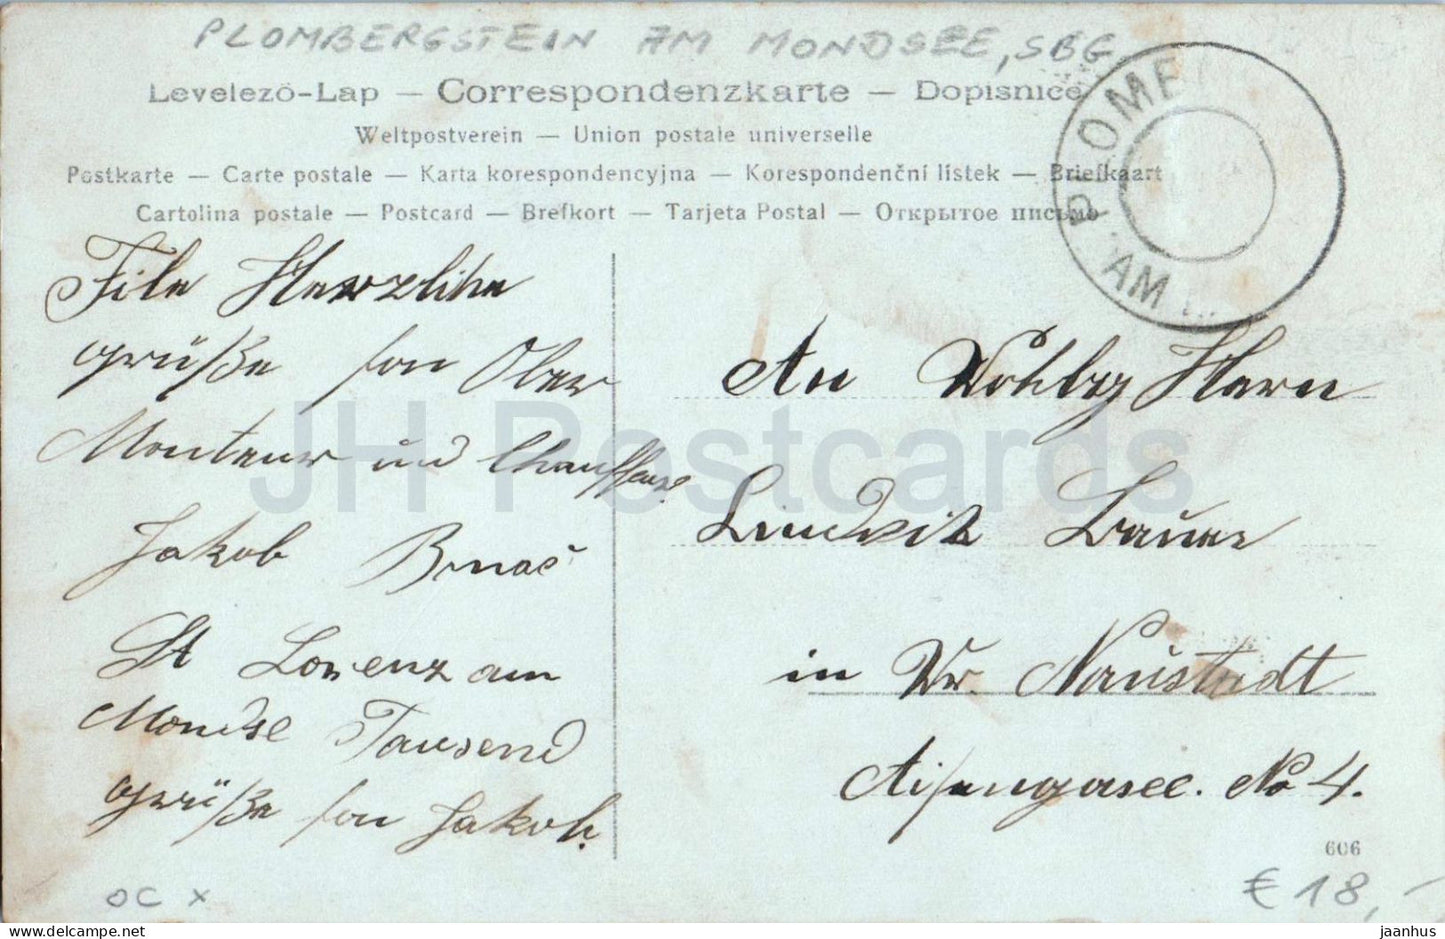 PLOMBERGSTEIN AM MONDSEE, SBG
Levelező-Lap — Correspondenzkarte — Dopisnice
Weltpostverein — Union postale universelle
Postkarte — Carte postale — Karta korespondencyjna — Korespondenční lístek — Briefkaart
Cartolina postale — Postcard — Brefkort — Tarjeta Postal — Открытое письмо
PLOMB
AM
File Herzlihe
grüße fon Ober
Monteur und Chauffeur
Jakob
St Lorenz am
Mondse Tausend
grüße fon Jakob.
An Wohlbg Herrn
Bauer
in Wr. Naustadt
No 4.
606
OC x
€ 18,-
JH Postcards
delcampe.net
jaanhus